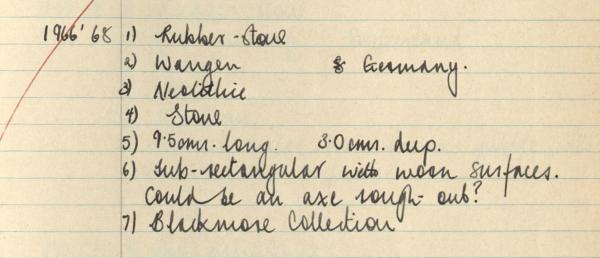 1966'68 1) Rubber-Stone
2) Wangen & Germany.
3) Neolithic
4) Stone
5) 9.5cms. long. 3.0cms. deep.
6) Sub-rectangular with worn surfaces.
Could be an axe rough-out?
7) Blackmore Collection